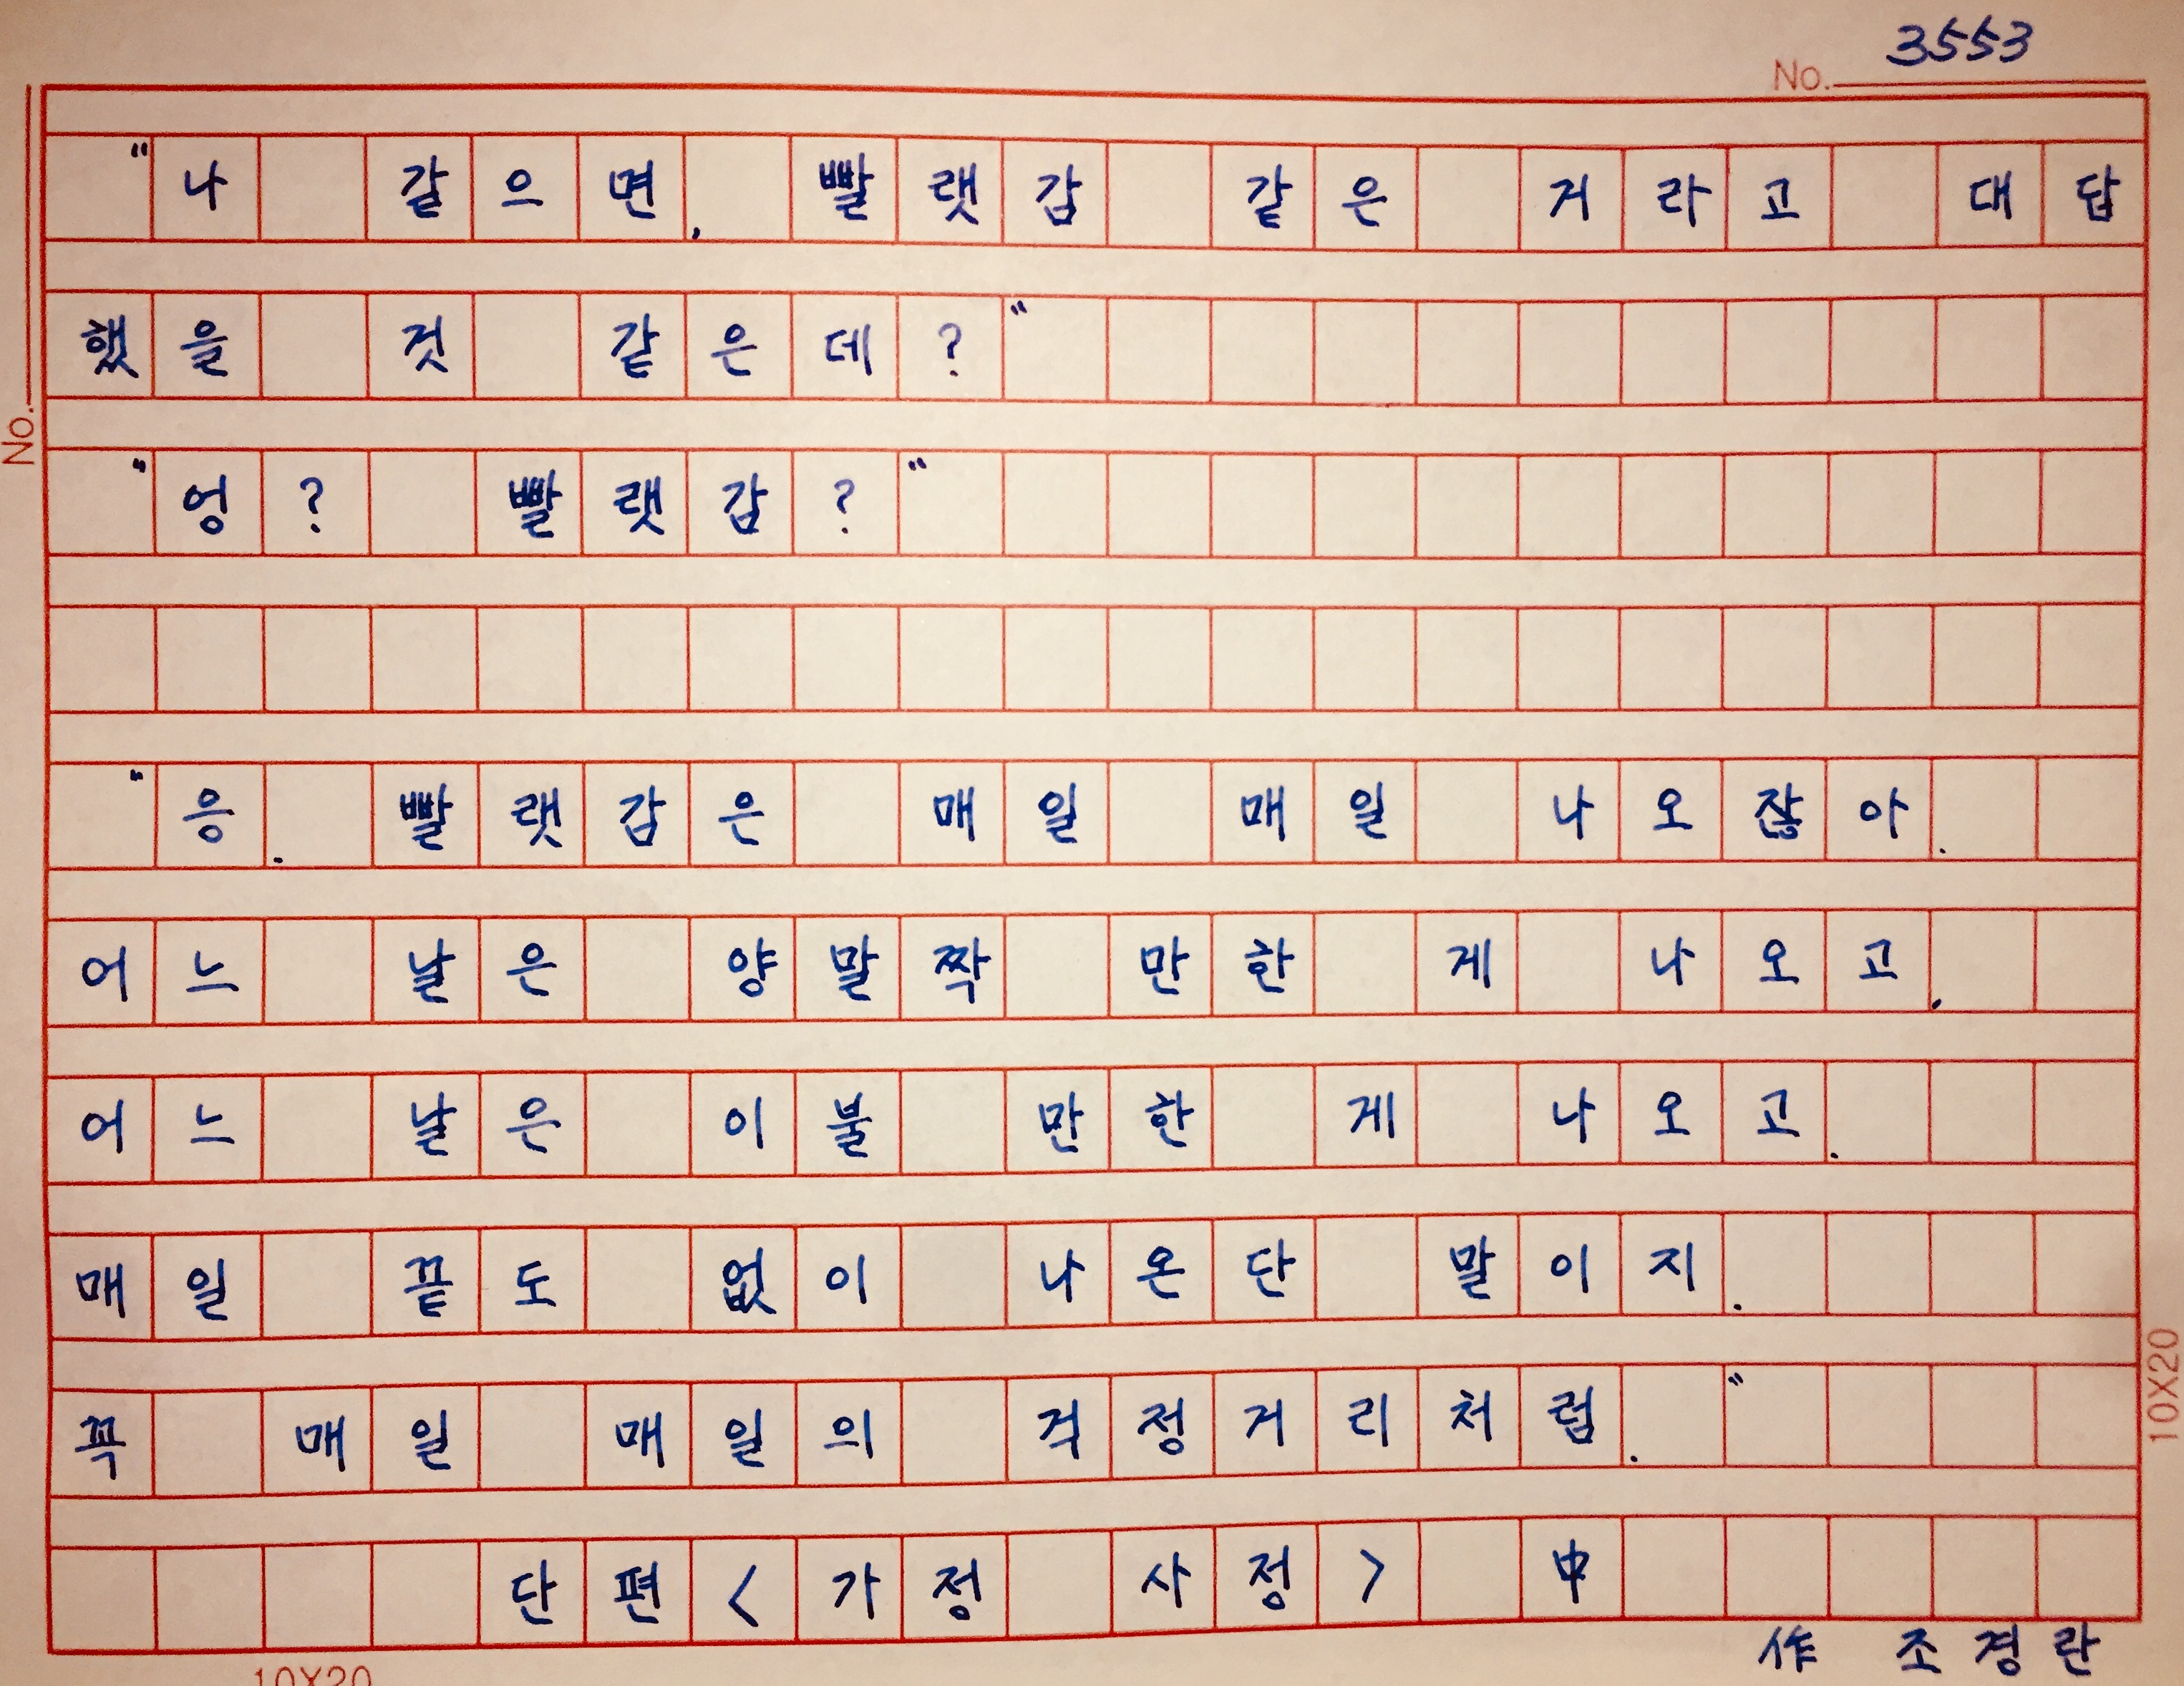 3553
No.
"나 같으면, 빨랫감 같은 거라고 대답
했을 것 같은데?"
"엉? 빨랫감?"
"응. 빨랫감은 매일 매일 나오잖아.
어느 날은 양말짝 만한 게 나오고,
어느 날은 이불 만한 게 나오고.
매일 끝도 없이 나온단 말이지.
꼭 매일 매일의 걱정거리처럼."
단편 <가정 사정> 中
作 조경란
No.
10X20
10X20